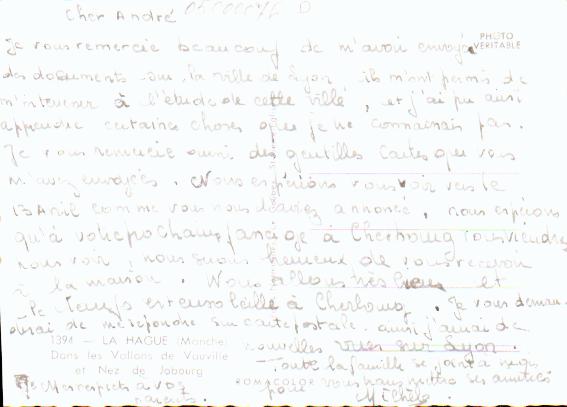 Cher André
PHOTO
VERITABLE
Je vous remercie beaucoup de m'avoir envoyé
des documents sur la ville de Lyon ils m'ont permis de
m'interesser à l'étude de cette ville, et j'ai pu ainsi
apprendre certaines choses que je ne connaissais pas.
Je vous remercie aussi des gentilles cartes que vous
m'avez envoyées. Nous espérions vous voir vers le
13 Avril comme vous nous l'aviez annoncé, nous espérons
qu'à votre prochain à Cherbourg vous viendrez
nous voir, nous serons heureux de vous recevoir
à la maison. Nous allons très bien et
le temps est ensoleillé à Cherbourg. Je vous deman
derai de me répondre sur carte postale. ainsi j'aurai de
nouvelles vues sur Lyon.
1394 — LA HAGUE (Manche)
Dans les Vallons de Vauville
et Nez de Jobourg
Toute la famille se joint à moi
pour vous transmettre ses amitiés
ROMACOLOR
Mes respects à vos
parents.
Michèle